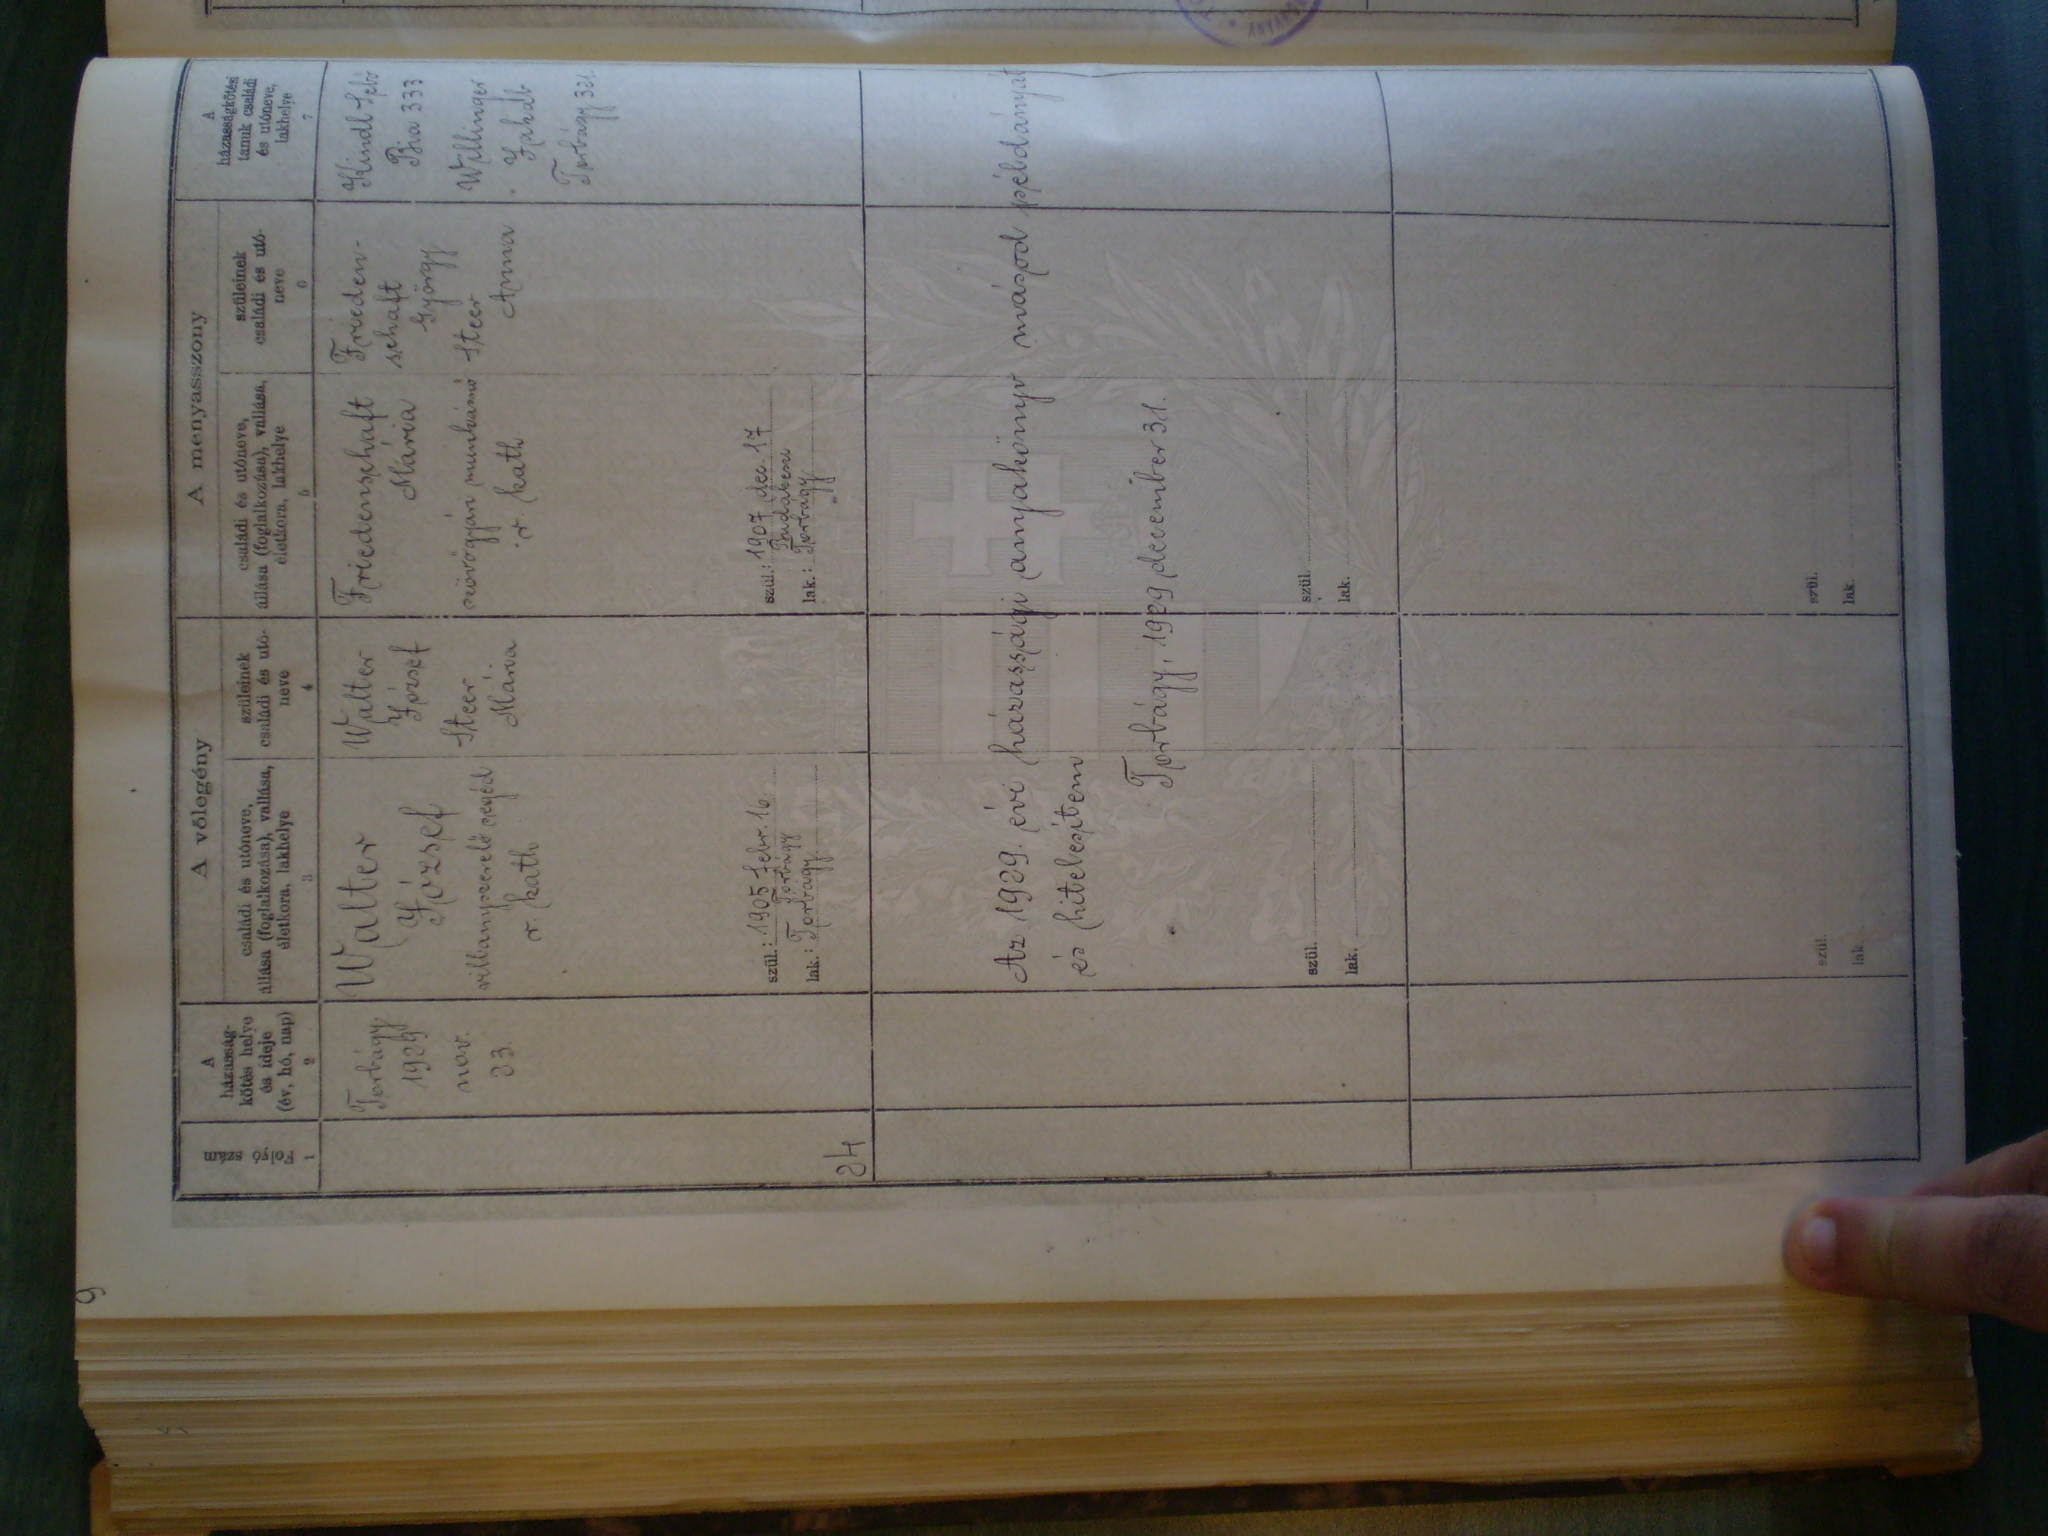 A vőlegény
A menyasszony
Fo-
lyó
szám
1
A
házasság-
kötés helye
és ideje
(év, hó, nap)
2
családi és utóneve,
állása (foglalkozása), vallása,
életkora, lakhelye
3
szüleinek
családi és utó-
neve
4
családi és utóneve,
állása (foglalkozása), vallása,
életkora, lakhelye
5
szüleinek
családi és utó-
neve
6
A
házasságkötési
tanuk családi
és utóneve,
lakhelye
7
24
Torbágy
1929
nov.
23.
Walter
József
villanyszerelő segéd
r. kath
szül.: 1905 febr. 16.
Torbágy
lak.: Torbágy
Walter
József
Steer
Mária
Friedenschaft
Mária
szövőgyári munkásnő
r. kath
szül.: 1907 dec. 17
Budakeszi
lak.: Torbágy
Frieden-
schaft
György
Steer
Anna
Kindl
Bia 333
Willinger
Jakab
Torbágy 321.
Az 1929. évi házassági anyakönyv másod példányát
és hitelesítem
Torbágy, 1929 december 31.
szül.
lak.
szül.
lak.
szül.
lak.
szül.
lak.
9